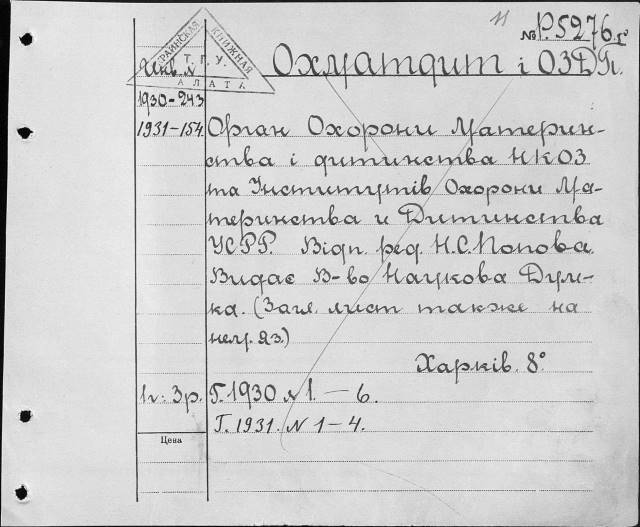 11 № Р.5276г
УКРАИНСКАЯ КНИЖНАЯ
Т.Г.У.
ПАЛАТА
Инв. №
Охматдит і ОЗДП.
1930-243
1931-154
Орган Охорони Материн-
ства і дитинства НКОЗ
та Інститутів Охорони Ма-
теринства и Дитинства
УСРР. Відп. ред. Н.С.Попова.
Видає В-во Наукова Дум-
ка. (Загл. лист також на
нем. яз.)
Харків. 8°
Г.1930 № 1. — 6.
Г.1931. № 1-4.
Цена